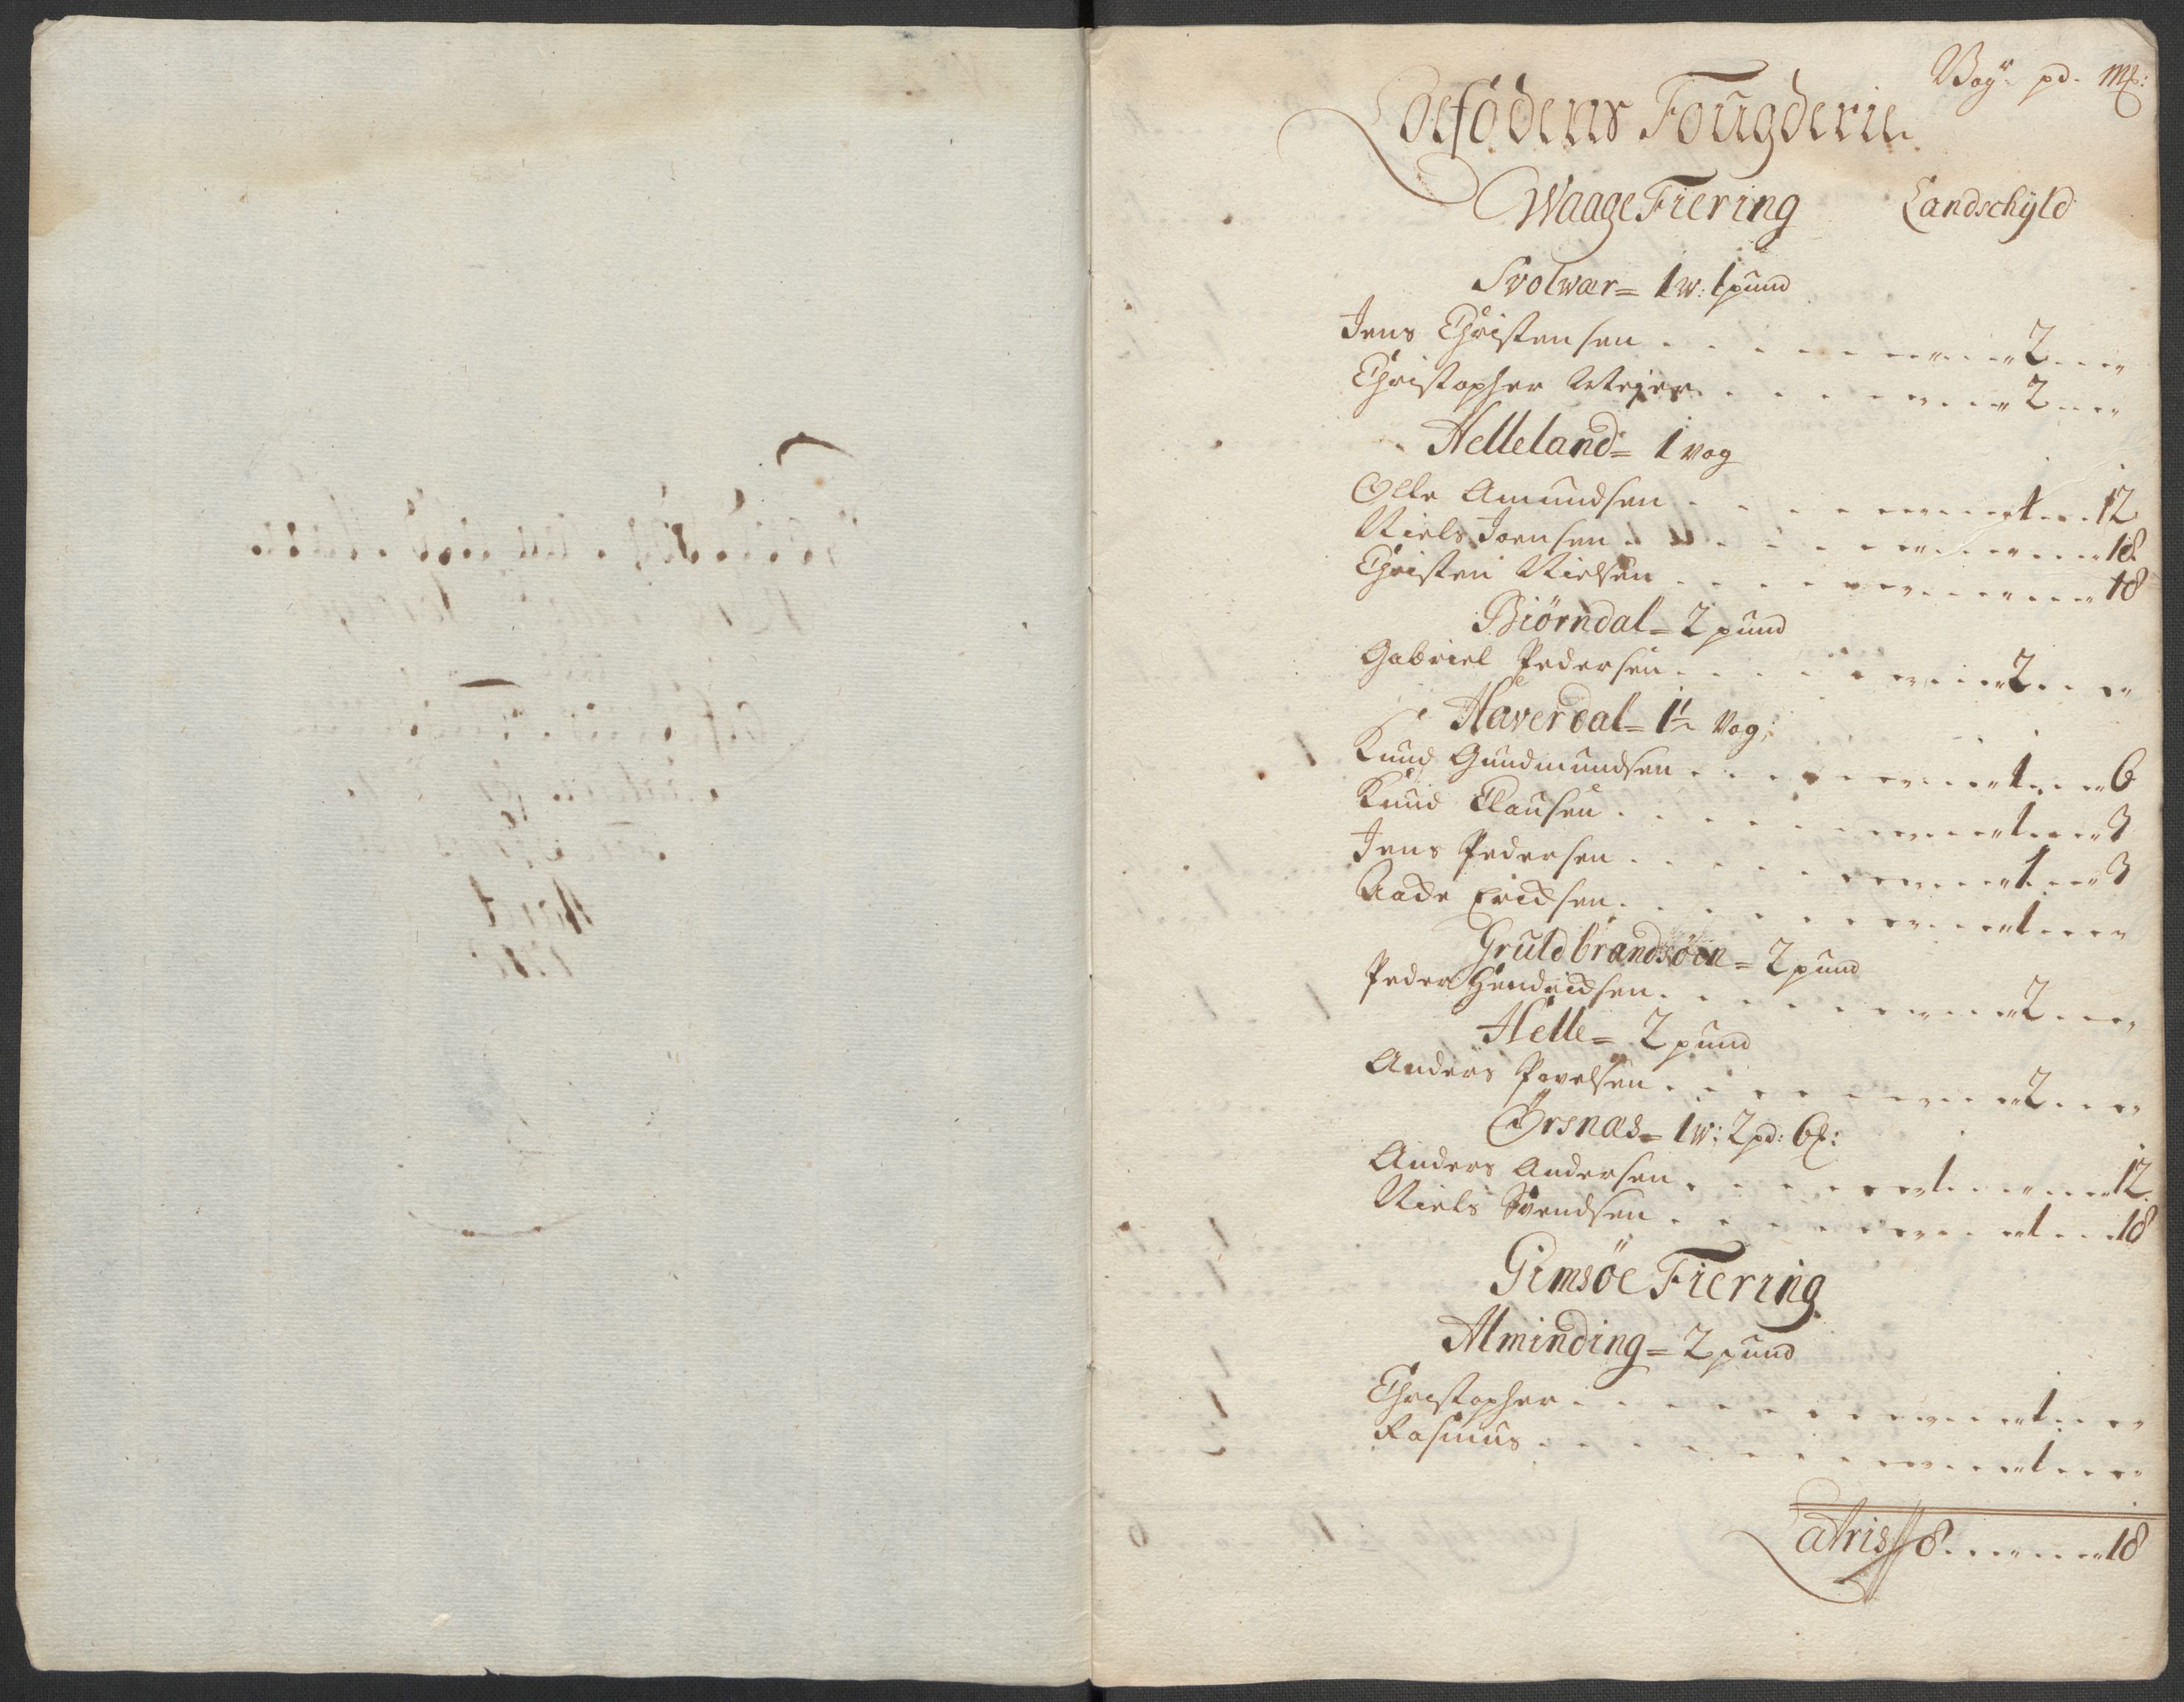 Vog pd. m&:
Lofodens Fougderie
Waage Fiering Landschyld
Svolwær = 1 w: 1 pund
Jens Christensen . . . 2 . . .
Christopher Meyer . . . 2 . . .
Helleland = 1 vog
Olle Amundsen . . . 1 . . . 12
Niels Joensen . . . 18
Christen Nielsen . . . 18
Biörndal = 2 pund
Gabriel Pedersen . . . 2 . . .
Haverdal = 1½ Vog
Knud Gundmundsen . . . 1 . . . 6
Knud Clausen . . . 1 . . . 3
Jens Pedersen . . . 1 . . . 3
Aade Ericksen . . . 1 . . .
Gruldbrandsöen = 2 pund
Peder Hendricksen . . . 2 . . .
Helle = 2 pund
Anders Povelsen . . . 2 . . .
Örsnæs = 1 w: 2 pd: 6 &:
Anders Andersen . . . 1 . . . 12
Niels Svendsen . . . 1 . . . 18
Gimsöe Fiering
Alminding = 2 pund
Christopher . . . 1 . . .
Rasmus . . . 1 . . .
Latris 8 . . . 18